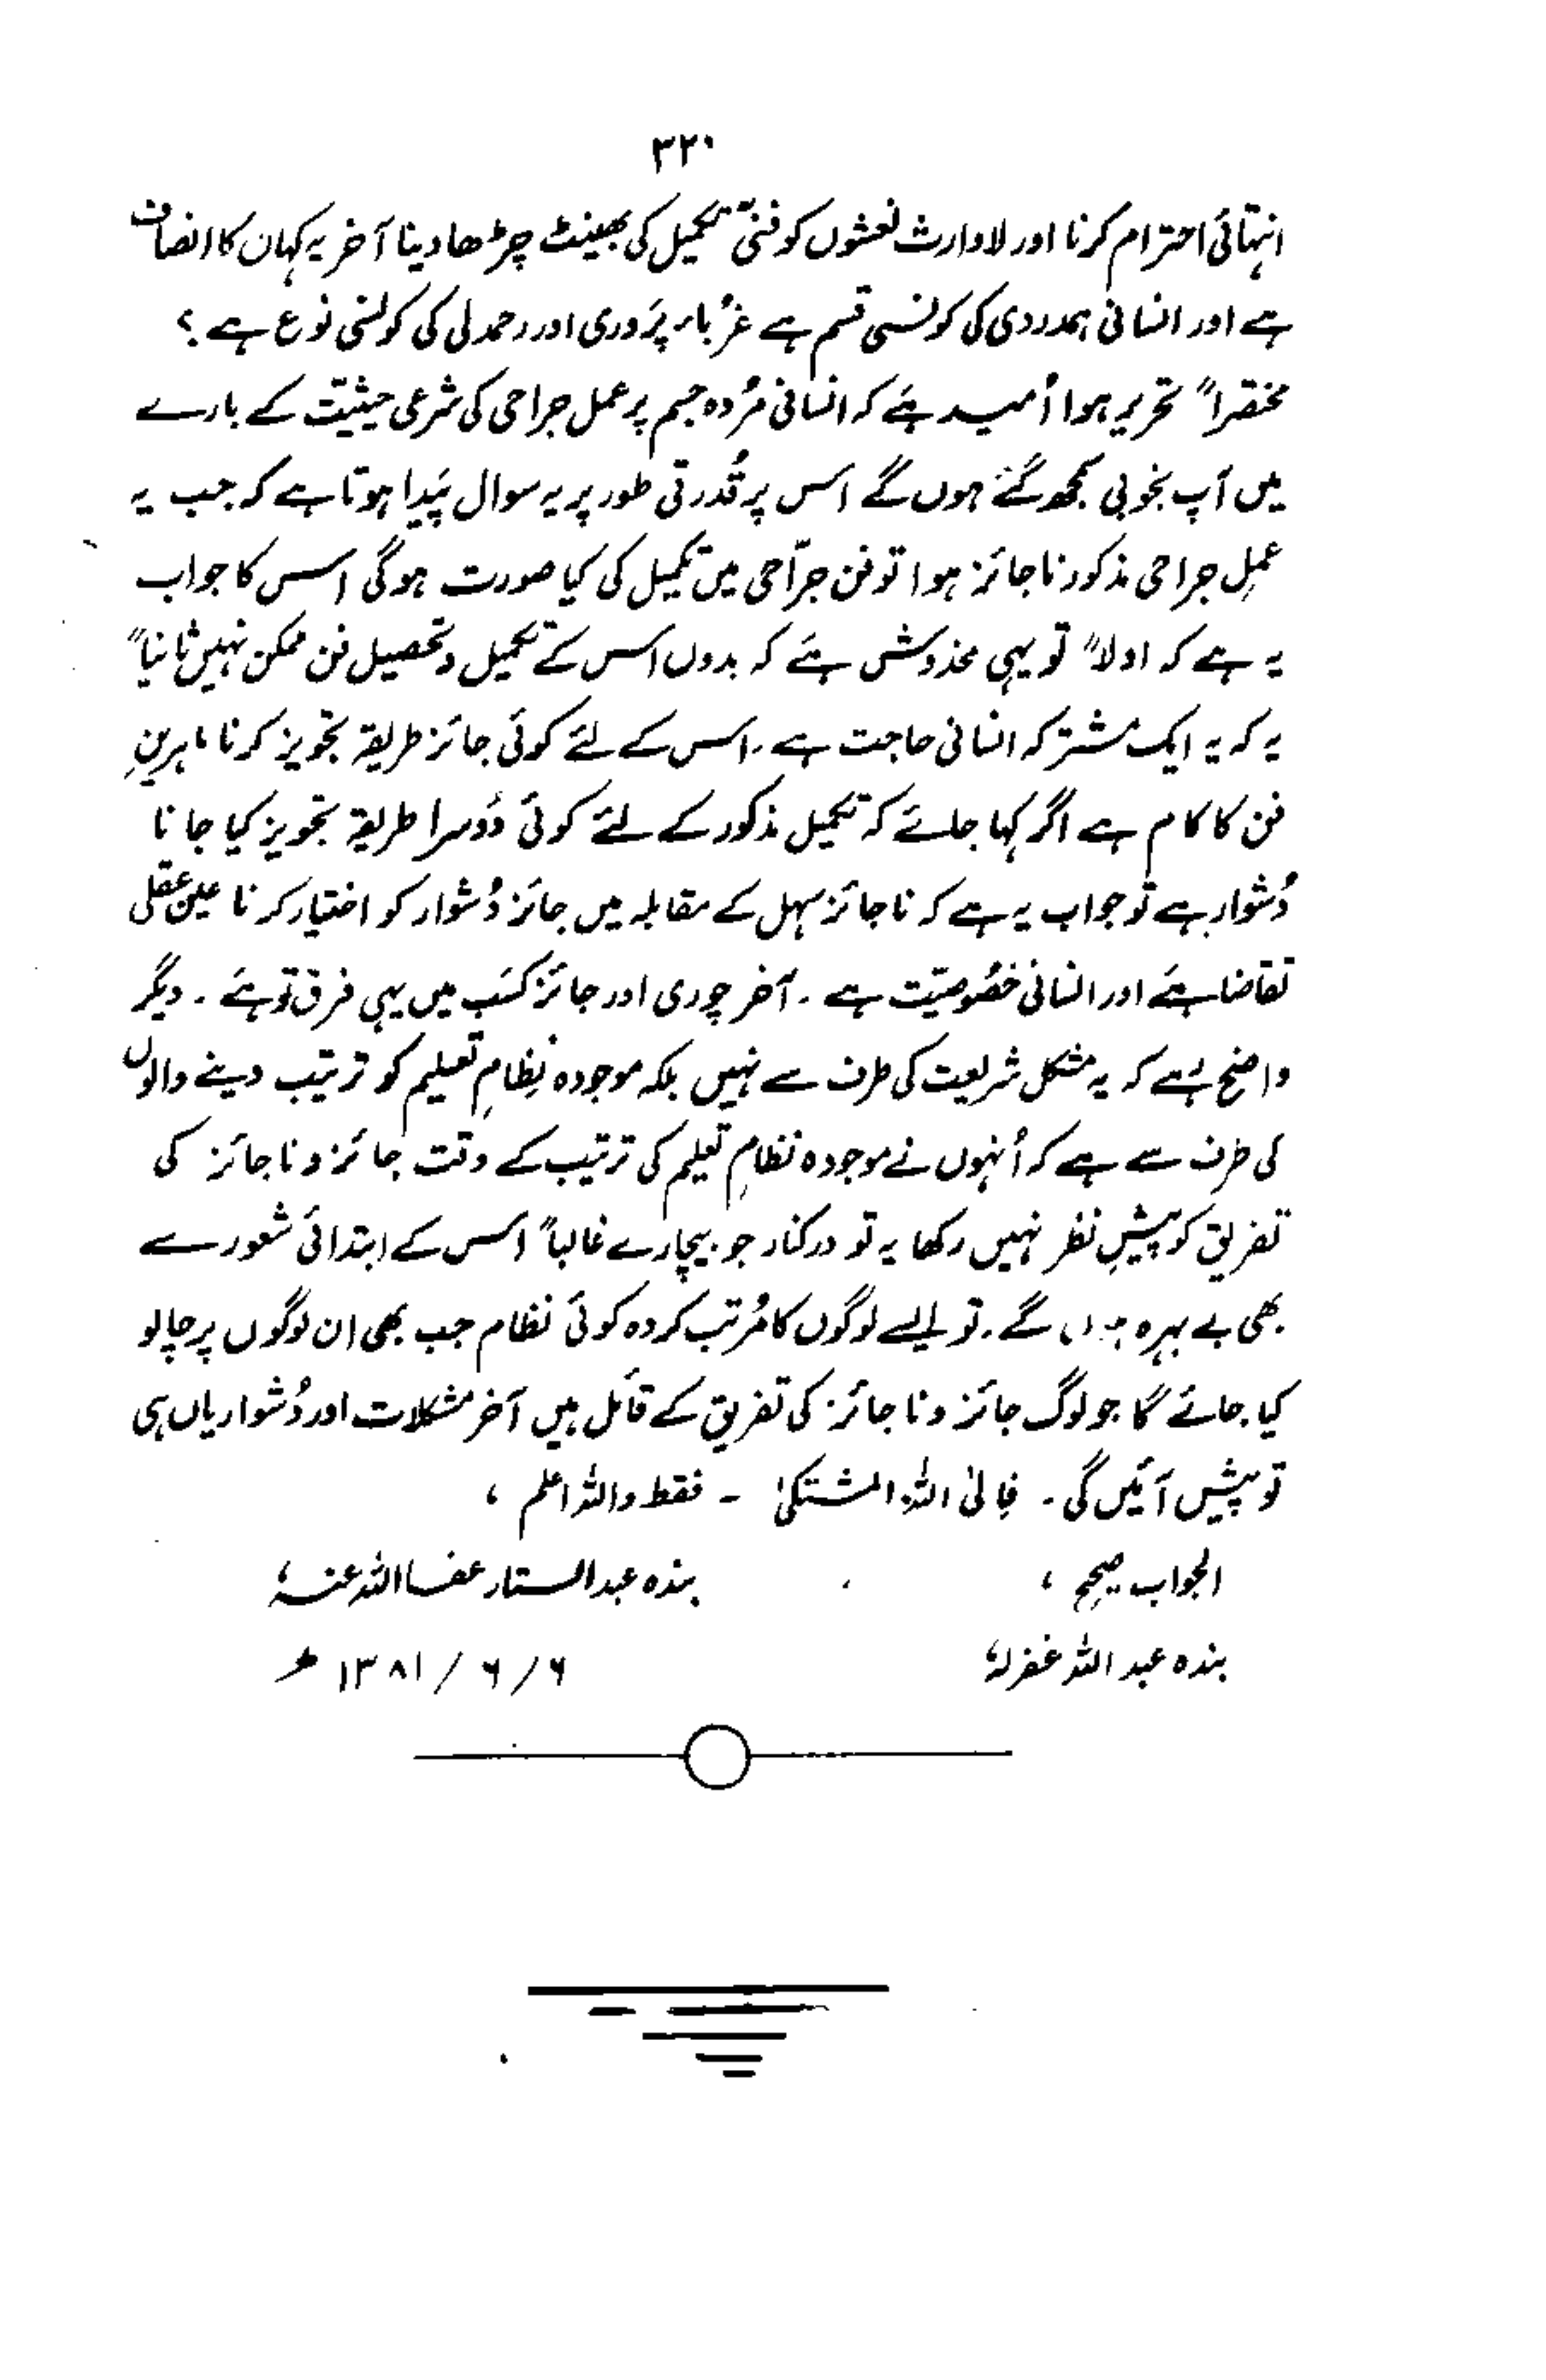 ۳۲۰
انتہائی احترام کرنا اور لاوارث نعشوں کو فنی تکمیل کی بھینٹ چڑھا دینا آخر یہ کہاں کا انصاف
ہے اور انسانی ہمدردی کی کونسی قسم ہے غرباء پروری اور رحمدلی کی کونسی نوع ہے ؟
مختصراً تحریر ہوا اُمید ہے کہ انسانی مُردہ جسم پر عمل جراحی کی شرعی حیثیت کے بارے
میں آپ بخوبی سمجھ گئے ہوں گے اس پر قُدرتی طور پر یہ سوال پَیدا ہوتا ہے کہ جب یہ
عملِ جراحی مذکور ناجائز ہوا تو فن جرّاحی میں تکمیل کی کیا صورت ہوگی اس کا جواب
یہ ہے کہ اولاً تو یہی مخدوش ہے کہ بدوں اس کے تکمیل و تحصیل فن ممکن نہیں ثانیاً
یہ کہ یہ ایک مشترکہ انسانی حاجت ہے ۔ اس کے لئے کوئی جائز طریقہ تجویز کرنا ماہرینِ
فن کا کام ہے اگر کہا جائے کہ تکمیل مذکور کے لئے کوئی دُوسرا طریقہ تجویز کیا جانا
دُشوار ہے تو جواب یہ ہے کہ ناجائز سہل کے مقابلہ میں جائز دُشوار کو اختیار کرنا عین عقلی
تقاضا ہے اور انسانی خصُوصیّت ہے ۔ آخر چوری اور جائز کسَب میں یہی فرق تو ہے ۔ دیگر
واضح رہے کہ یہ مشکل شریعت کی طرف سے نہیں بلکہ موجودہ نِظامِ تعلیم کو ترتیب دینے والوں
کی طرف سے ہے کہ اُنہوں نے موجودہ نظامِ تعلیم کی ترتیب کے وقت جائز و ناجائز کی
تفریق کو پیشِ نظر نہیں رکھا یہ تو درکنار جو بیچارے غالباً اس کے ابتدائی شعور سے
بھی بے بہرہ ہوں گے ۔ تو ایسے لوگوں کا مُرتب کردہ کوئی نظام جب بھی ان لوگوں پر چالو
کیا جائے گا جو لوگ جائز و ناجائز کی تفریق کے قائل ہیں آخر مشکلات اور دُشواریاں ہی
تو پیش آئیں گی ۔ فالی اللہ المشتکیٰ ۔ فقط واللہ اعلم ،
الجواب صحیح ، بندہ عبدالستار عفا اللہ عنہ،
بندہ عبداللہ غفرلہ، ۶/۶/۱۳۸۱ھ